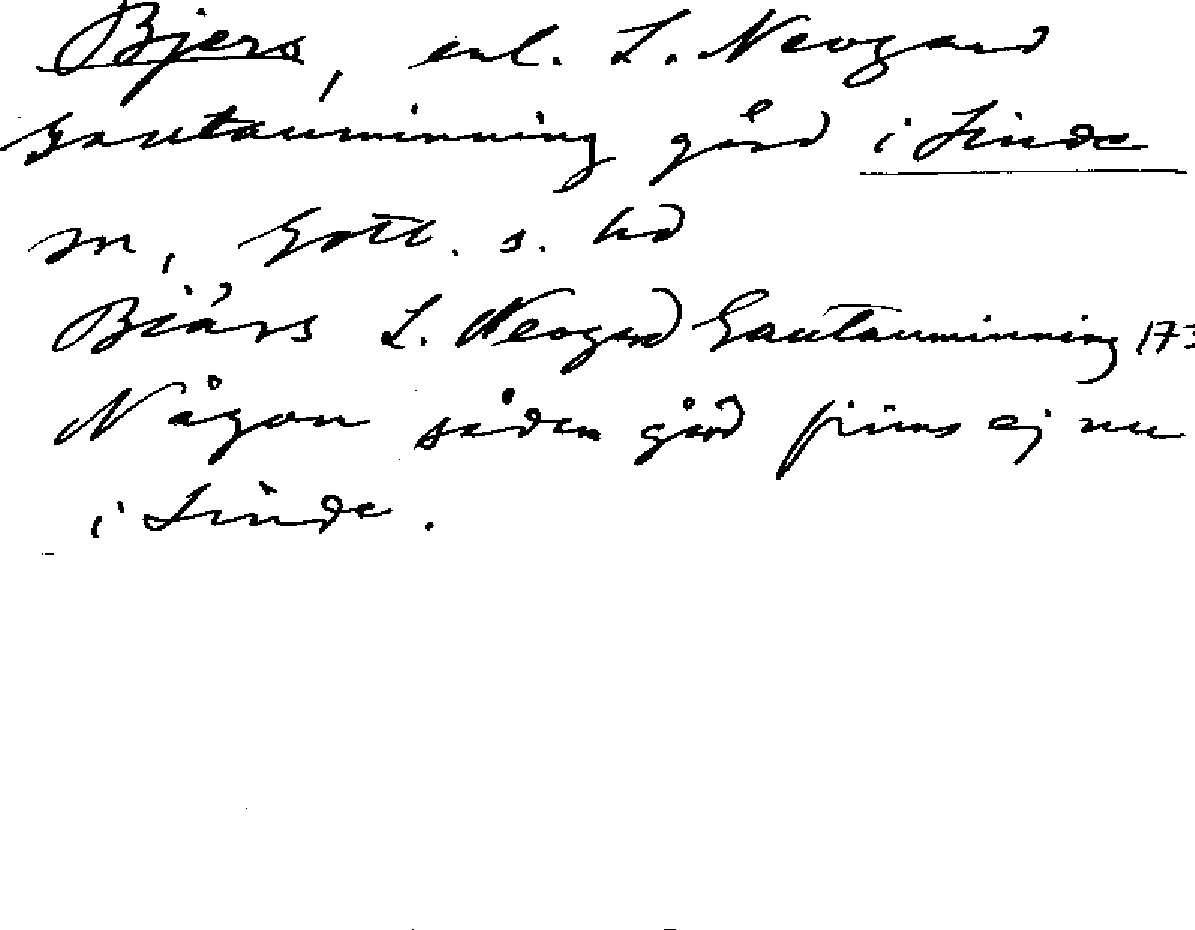 Bjers, enl. L. Neogard
Gautauminning gård i Linde
sn, Gotl. s. hd
Biärs L. Neogard Gautauminning 173
Någon sådan gård finns ej nu
i Linde.